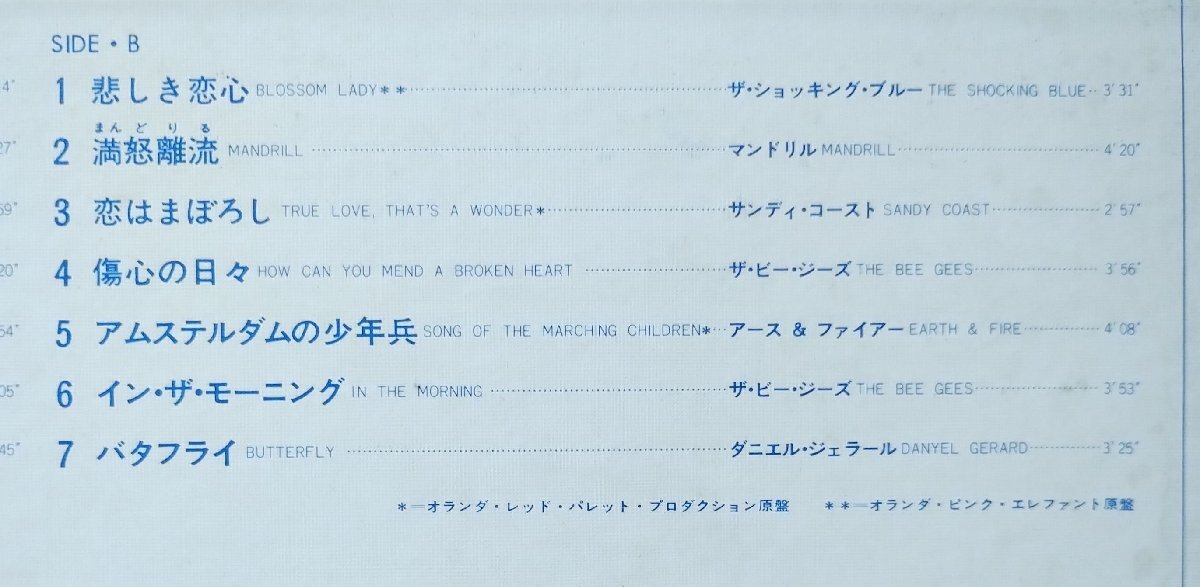 SIDE・B
4″ 1 悲しき恋心 BLOSSOM LADY＊＊ ザ・ショッキング・ブルー THE SHOCKING BLUE 3′31″
まんどりる
27″ 2 満怒離流 MANDRILL マンドリル MANDRILL 4′20″
59″ 3 恋はまぼろし TRUE LOVE, THAT'S A WONDER＊ サンディ・コースト SANDY COAST 2′57″
20″ 4 傷心の日々 HOW CAN YOU MEND A BROKEN HEART ザ・ビー・ジーズ THE BEE GEES 3′56″
54″ 5 アムステルダムの少年兵 SONG OF THE MARCHING CHILDREN＊ アース & ファイアー EARTH & FIRE 4′08″
05″ 6 イン・ザ・モーニング IN THE MORNING ザ・ビー・ジーズ THE BEE GEES 3′53″
45″ 7 バタフライ BUTTERFLY ダニエル・ジェラール DANYEL GERARD 3′25″
＊＝オランダ・レッド・バレット・プロダクション原盤 ＊＊＝オランダ・ピンク・エレファント原盤